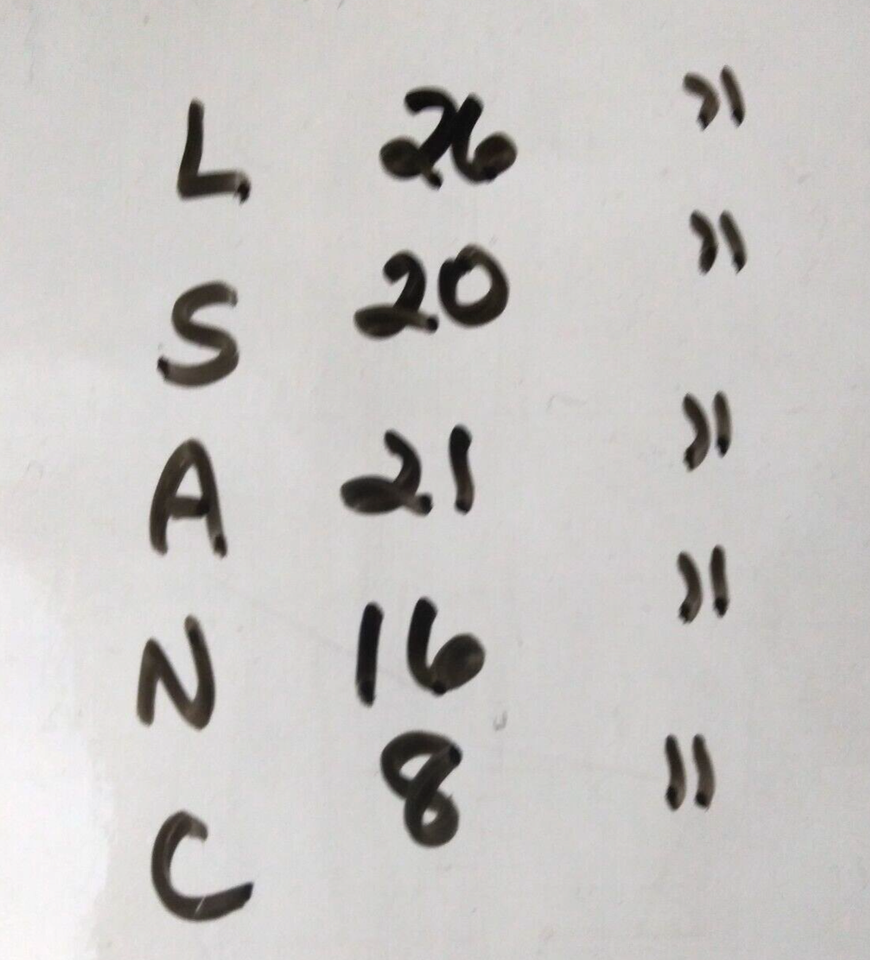 L 26 "
S 20 "
A 21 "
N 16 "
C 8 "